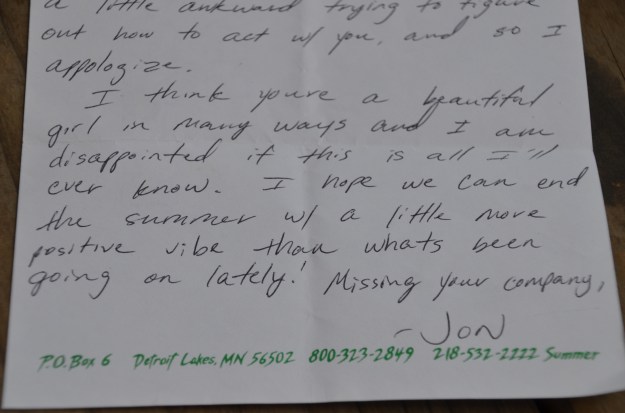 a little ankward trying to figure
out how to act w/ you, and so I
appologize.
I think youre a beautiful
girl in many ways and I am
disappointed if this is all I'll
ever know. I hope we can end
the summer w/ a little more
positive vibe than whats been
going on lately! Missing your company,
- JON
P.O. Box 6 Detroit Lakes, MN 56502 800-323-2849 218-532-2222 Summer